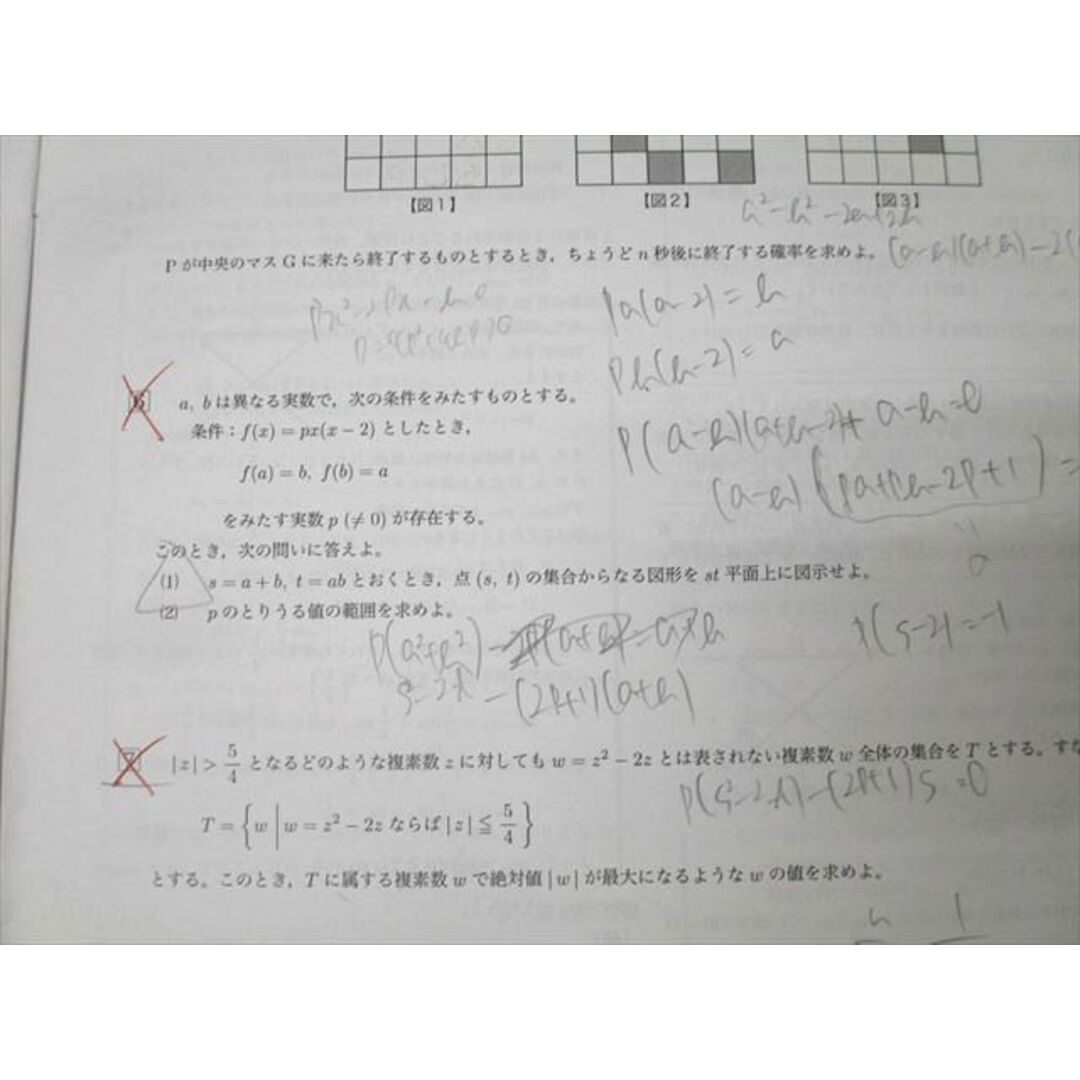 【図1】 【図2】 【図3】
Pが中央のマスGに来たら終了するものとするとき,ちょうどn秒後に終了する確率を求めよ。
Pa(a-2)=b
Pb(b-2)=a
6 a, bは異なる実数で,次の条件をみたすものとする。
条件:f(x)=px(x-2)としたとき,
P(a-b)(a+b-2)+a-b=0
f(a)=b, f(b)=a
(a-b)(pa+pb-2p+1)=
をみたす実数p(≠0)が存在する。
このとき,次の問いに答えよ。
(1) s=a+b, t=abとおくとき,点(s, t)の集合からなる図形をst平面上に図示せよ。
(2) pのとりうる値の範囲を求めよ。
P(s-2)=-1
P(a²+b²)
-(2p+1)(a+b)
7 |z|>5/4となるどのような複素数zに対してもw=z²-2zとは表されない複素数w全体の集合をTとする。すな
P(s²-2t)-(2p+1)s=0
T={w|w=z²-2zならば|z|≦5/4}
とする。このとき,Tに属する複素数wで絶対値|w|が最大になるようなwの値を求めよ。